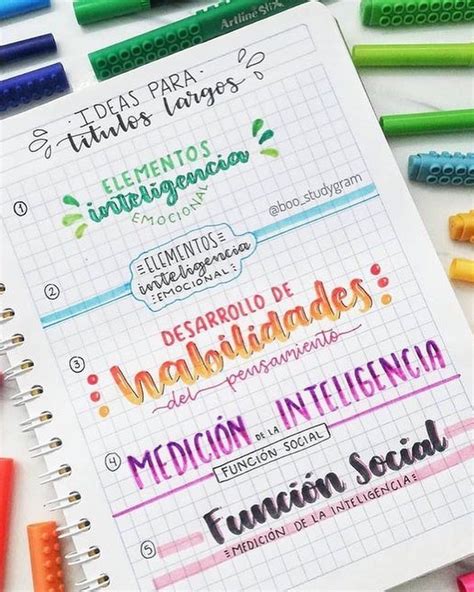 Artline Stix
IDEAS PARA
títulos largos
① ELEMENTOS
inteligencia
EMOCIONAL
@boo_studygram
② ELEMENTOS
inteligencia
EMOCIONAL
③ DESARROLLO DE
habilidades
del pensamiento
④ MEDICIÓN DE LA INTELIGENCIA
FUNCIÓN SOCIAL
⑤ Función Social
MEDICIÓN DE LA INTELIGENCIA